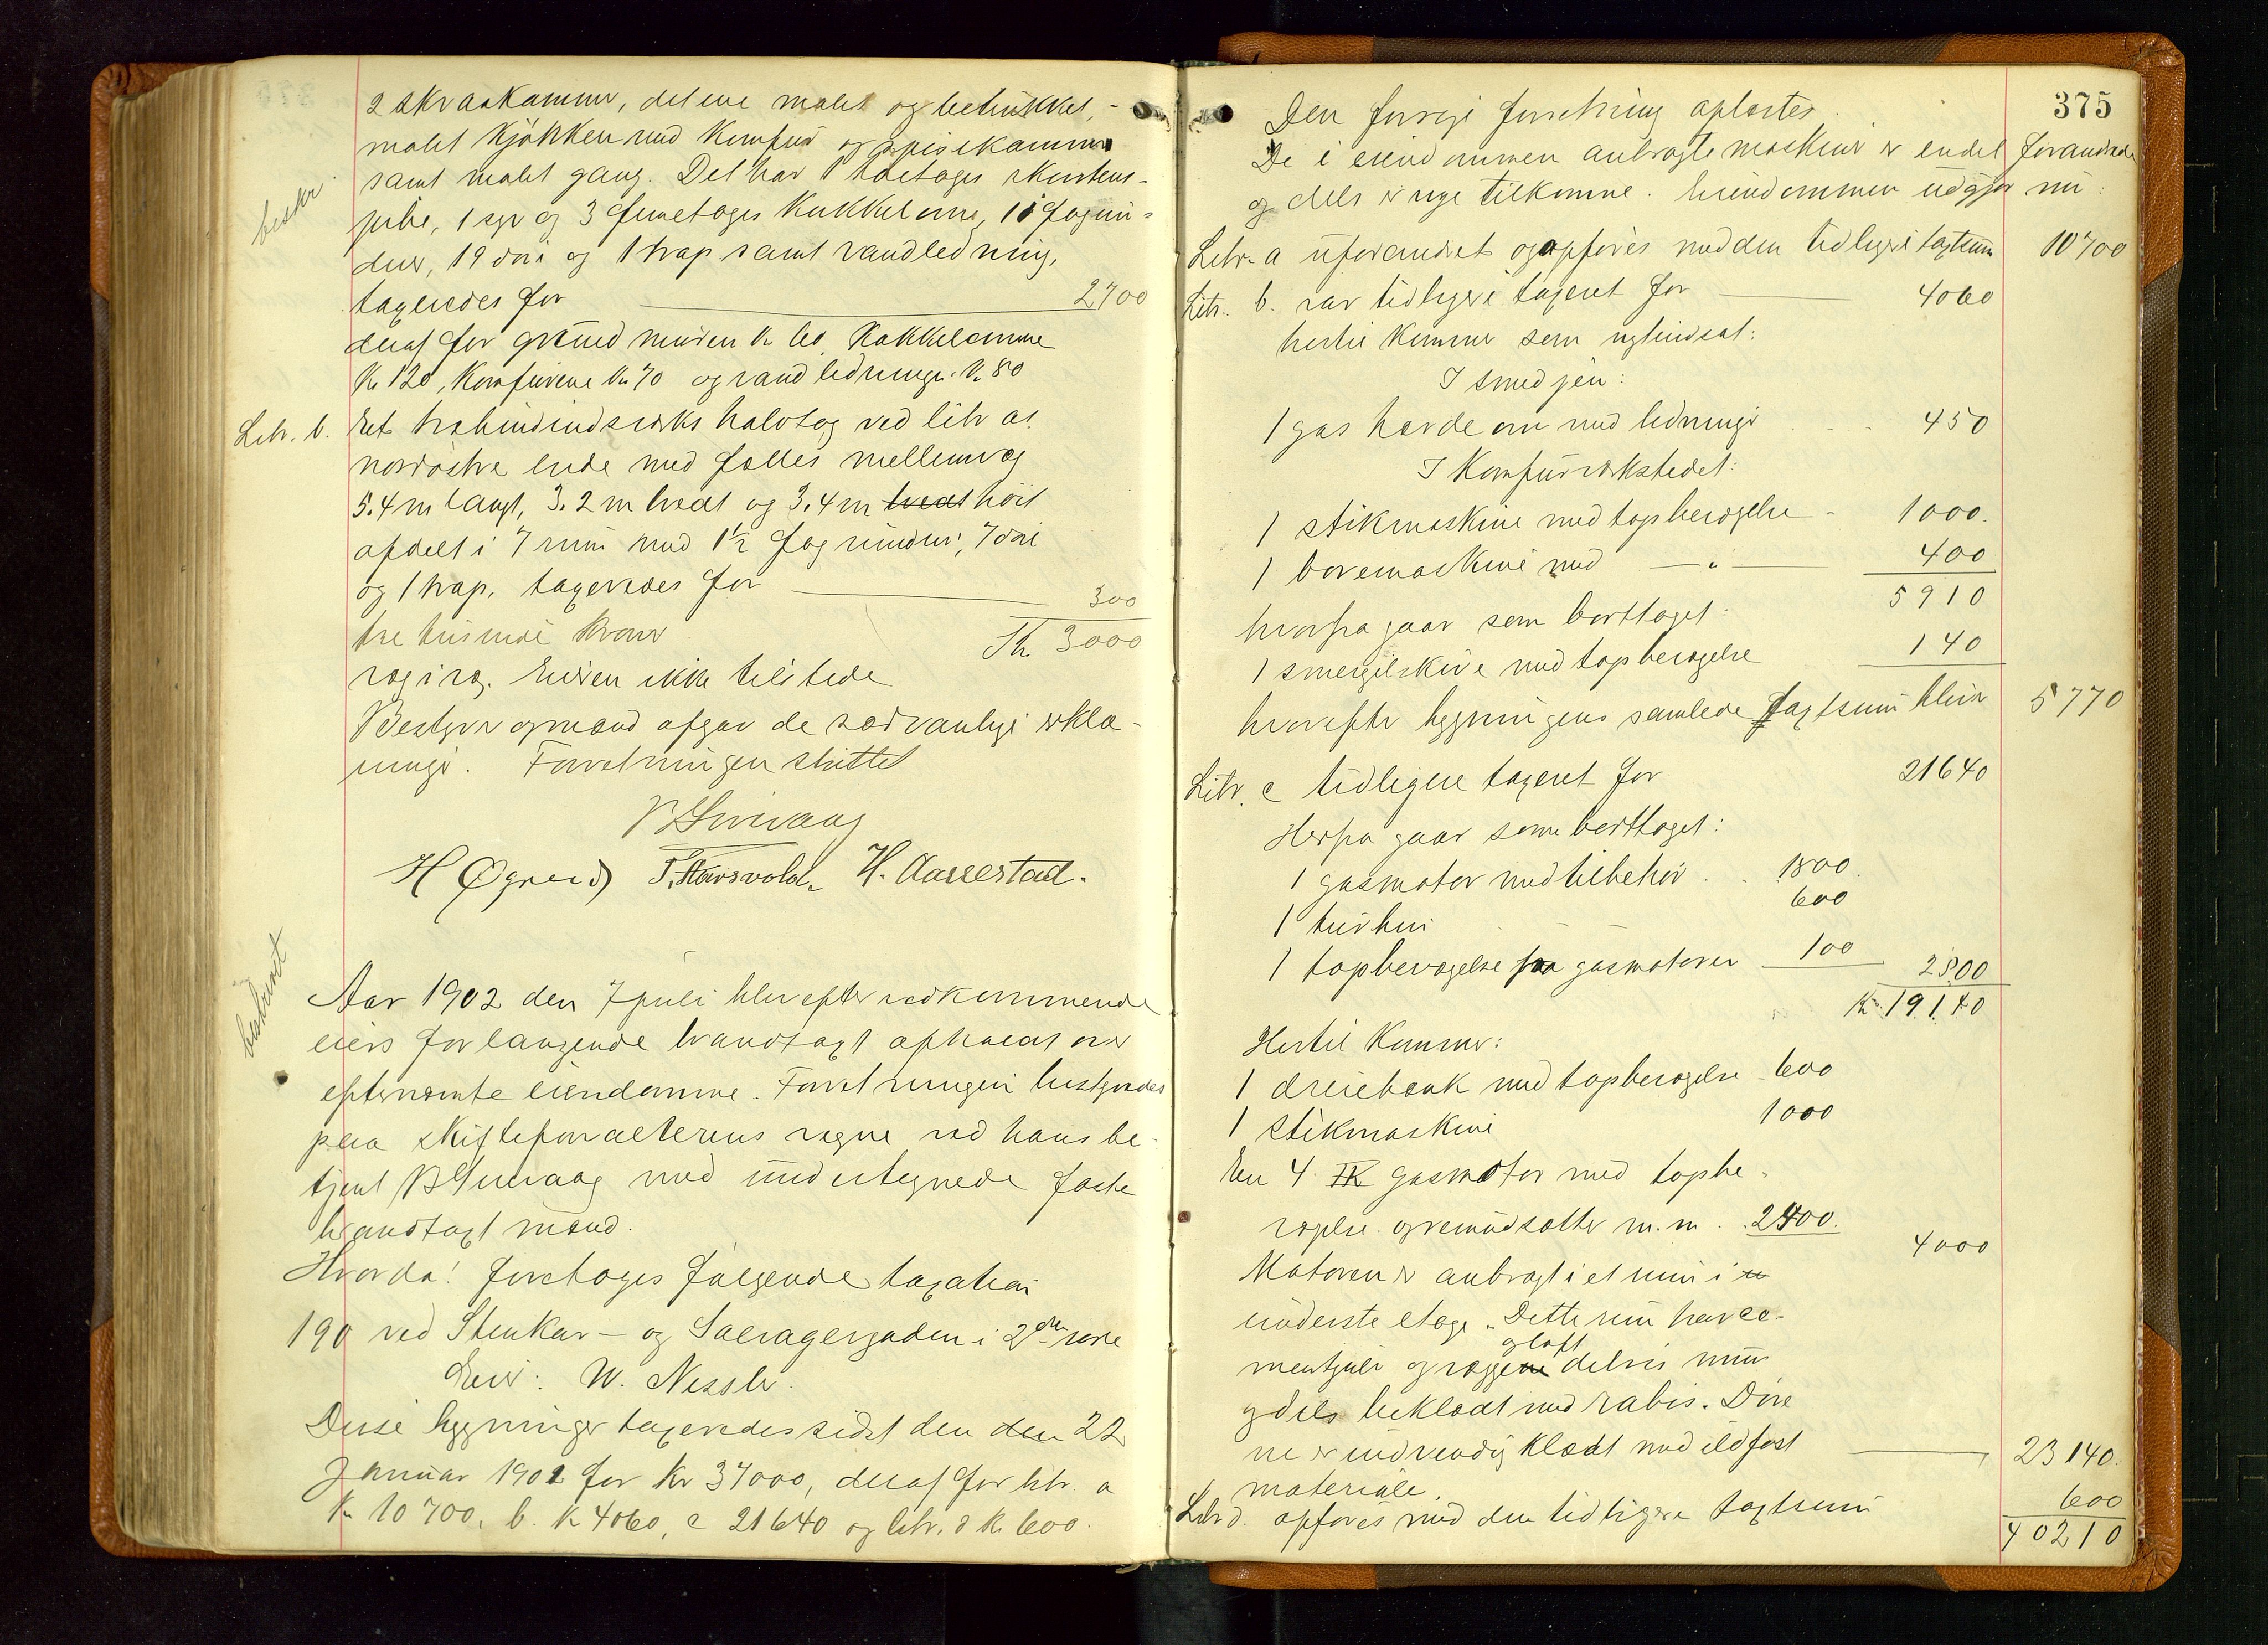 2 skraakammer, det ene malet og betrukket,-
malet kjökken med komfur og spisekammer
samt malet gang. Det har 1 toetages skorstens-
pibe, 1 syv og 3 femetages kakkelovne, 11 fag vin-
beskr.
duer, 19 döre og 1 trap samt vandledning,
taxeredes for 2700
deraf for grundmuren kr 60, kakkelovnene
Kr 120, komfurene kr 70 og vandledningen kr 80
Litr. b. Et træbindindsværks halvtag ved litr a's
nordöstre ende med fælles mellemvæg
5.4 m langt, 3.2 m bredt og 3.4 m bredt höit
afdelt i 7 rum med 1½ fag vinduer, 7 döre
og 1 trap, taxeredes for 300
tre tusinde kroner Kr 3000
væg i væg. Eieren ikke tilstede
Bestyrer og mænd afgav de sædvanlige erklæ-
ringer. Forretningen sluttet
H Øgreid T. Harsvold. H. Aarrestad.
beskrevet
Aar 1902 den 7 juli blev efter vedkommende
eiers forlangende brandtaxt afholdt over
efternævnte eiendomme. Forretningen bestyredes
paa skifteforvalterens vegne ved hans be-
tjent med undertegnede faste
brandtaxtmænd.
Hvorda! foretoges fölgende taxation
190 ved Stenkar- og Solvagergaden i 2den rode
Eier: W. Nessler.
Disse bygninger taxeredes sidst den den 22
Januar 1902 for kr 37000, deraf for litr. a
Kr 10700, b. kr 4060, c 21640 og litr. d kr 600.
375
Den forrige forretning oplæstes.
De i eiendommen anbragte maskiner er endel forandrede
og dels er nye tilkomne. Eiendommen udgjör nu:
Litr. a uforandret og opföres med den tidligere taxtsum 10700
Litr. b. var tidligere taxeret for 4060
hertil kommer som nyindsat:
I smedjen:
1 gas hærdeovn med ledninger 450
I komfurværkstedet:
1 stikmaskine med tapbevægelse - 1000.
1 boremaskine med — " — 400
5910
hvorfra gaar som borttaget:
1 smergelskive med tapbevægelse 140
hvorefter bygningens samlede taxtsum bliver 5770
Litr. c tidligere taxeret for 21640
Herfra gaar som borttaget:
1 gasmotor med tilbehör . . 1800.
1 600
1 tapbevægelse fra gasmotoren 100 2500
Kr 19140
Hertil kommer:
1 dreiebænk med tapbevægelse 600
1 stikmaskine 1000
En 4 HK gasmotor med tapbe-
vægelse og remudsætter m.m. 2400. 4000
Motoren er anbragt i et rum i
underste etage. Dette rum har ce-
mentgulv og væggene og loft delvis mur
og dels beklædt med rabis. Döre
ne er indvendig klædt med ildfast
materiale 23140.
Litr d. opföres med den tidligere taxtsum 600
40210